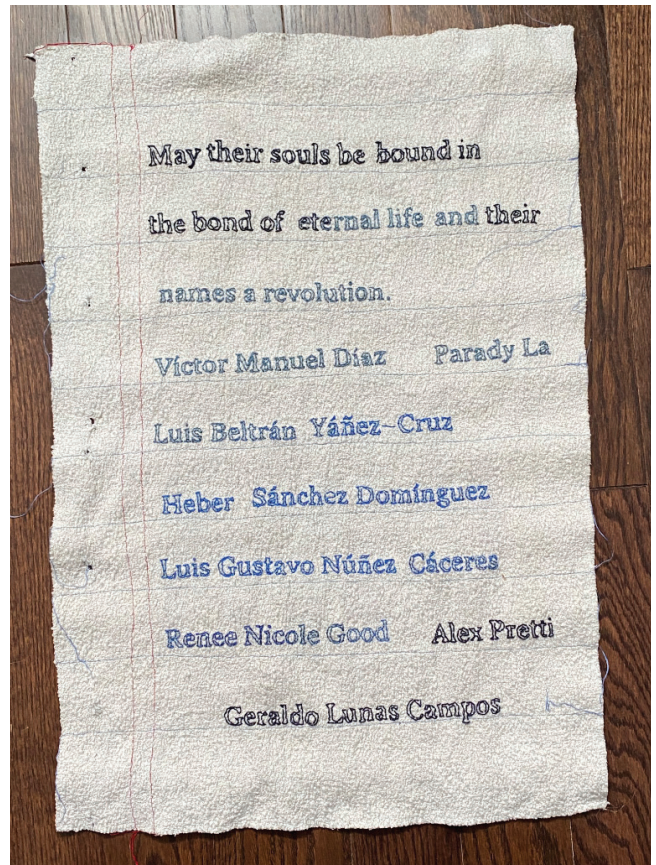 May their souls be bound in
the bond of eternal life and their
names a revolution.
Víctor Manuel Díaz Parady La
Luis Beltrán Yáñez-Cruz
Heber Sánchez Domínguez
Luis Gustavo Núñez Cáceres
Renee Nicole Good Alex Pretti
Geraldo Lunas Campos